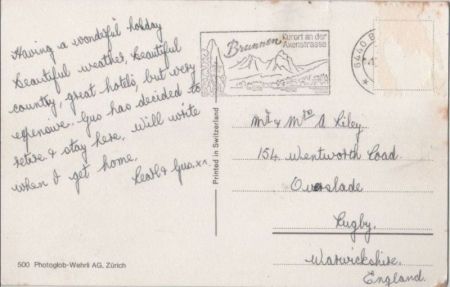 Having a wonderful holiday
Beautiful weather, beautiful
country, great hotels, but very
expensive. Gus has decided to
retire & stay here. Will write
when I get home.
Gus. x x
500 Photoglob-Wehrli AG, Zürich
Printed in Switzerland
Brunnen
Kurort an der
Axenstrasse
6440 B
Mr & Mrs A Riley
154 Wentworth Road
Overslade
Rugby.
Warwickshire.
England.